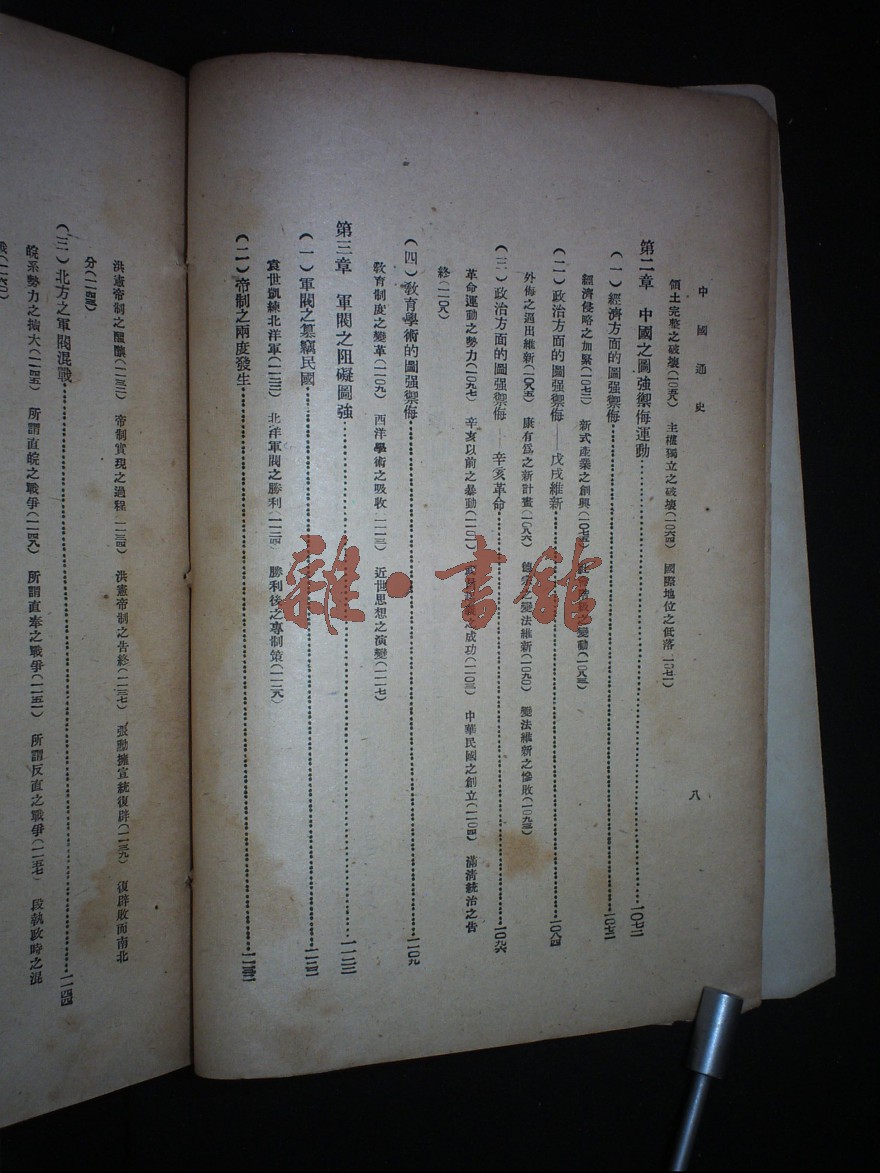 中國通史
八
領土完整之破壞(一〇五九) 主權獨立之破壞(一〇六四) 國際地位之低落(一〇七一)
第二章 中國之圖強禦侮運動………一〇七二
(一)經濟方面的圖强禦侮………一〇七二
經濟侵略之加緊(一〇七二) 新式產業之創興(一〇七五) 之變動(一〇八三)
(二)政治方面的圖强禦侮——戊戌維新………一〇八四
外侮之逼出維新(一〇八五) 康有爲之新計畫(一〇八六) 德宗之變法維新(一〇九〇) 變法維新之慘敗(一〇九三)
(三)政治方面的圖强禦侮——辛亥革命………一〇九六
革命運動之勢力(一〇九七) 辛亥以前之暴動(一一〇一) 之成功(一一〇三) 中華民國之創立(一一〇四) 滿清統治之告
終(一一〇八)
(四)敎育學術的圖强禦侮………一一〇九
敎育制度之變革(一一〇九) 西洋學術之吸收(一一一三) 近世思想之演變(一一一七)
第三章 軍閥之阻礙圖強………一一二三
(一)軍閥之纂竊民國………一一二三
袁世凱練北洋軍(一一二三) 北洋軍閥之勝利(一一二四) 勝利後之專制策(一一二八)
(二)帝制之兩度發生………一一三二
洪憲帝制之醞釀(一一三三) 帝制實現之過程(一一三四) 洪憲帝制之告終(一一三七) 張勳擁宣統復辟(一一三九) 復辟敗而南北
分(一一四三)
(三)北方之軍閥混戰………一一四四
皖系勢力之擴大(一一四五) 所謂直皖之戰爭(一一四八) 所謂直奉之戰爭(一一五二) 所謂反直之戰爭(一一五七) 段執政時之混
戰(一一六二)
雜·書館